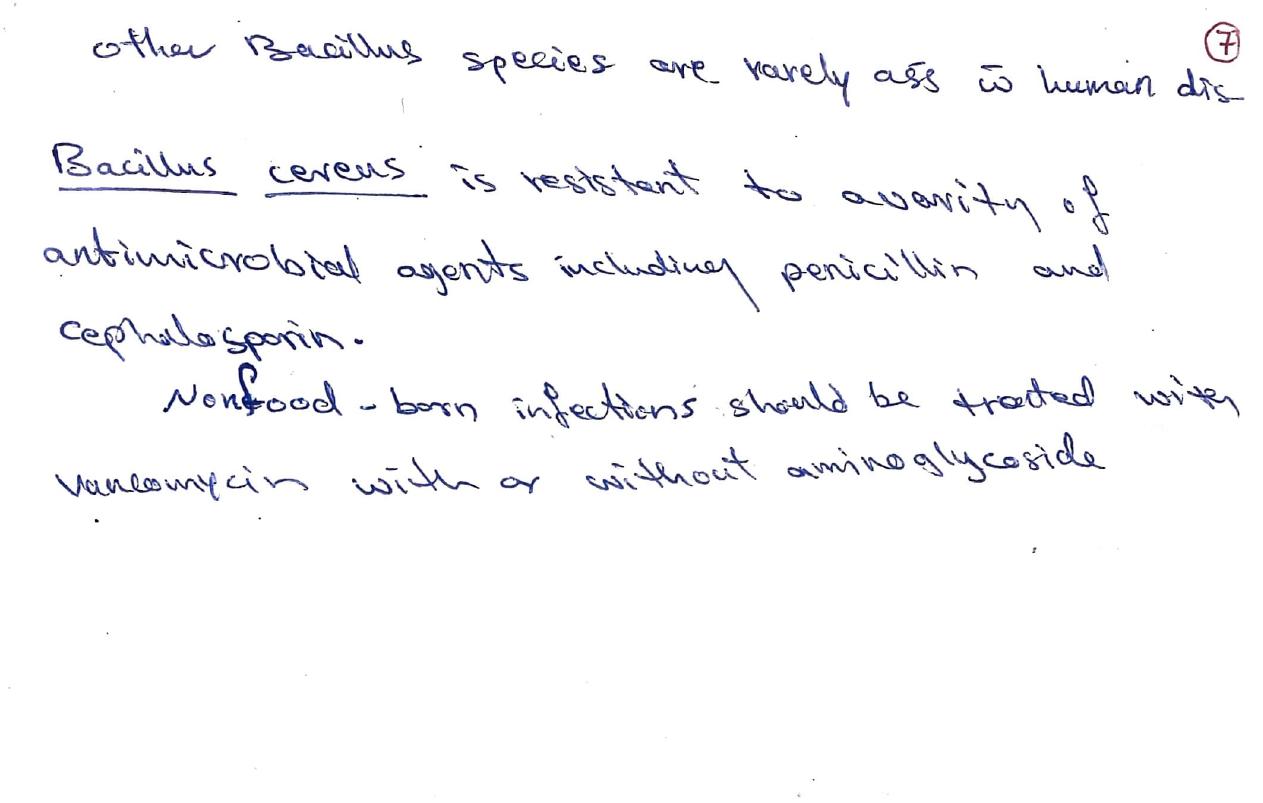 7
other Bacillus species are rarely ass w̄ human dis
Bacillus cereus is resistant to avarity of
antimicrobial agents including penicillin and
cephalosporin.
Nonfood-born infections should be treated with
vancomycin with or without aminoglycoside